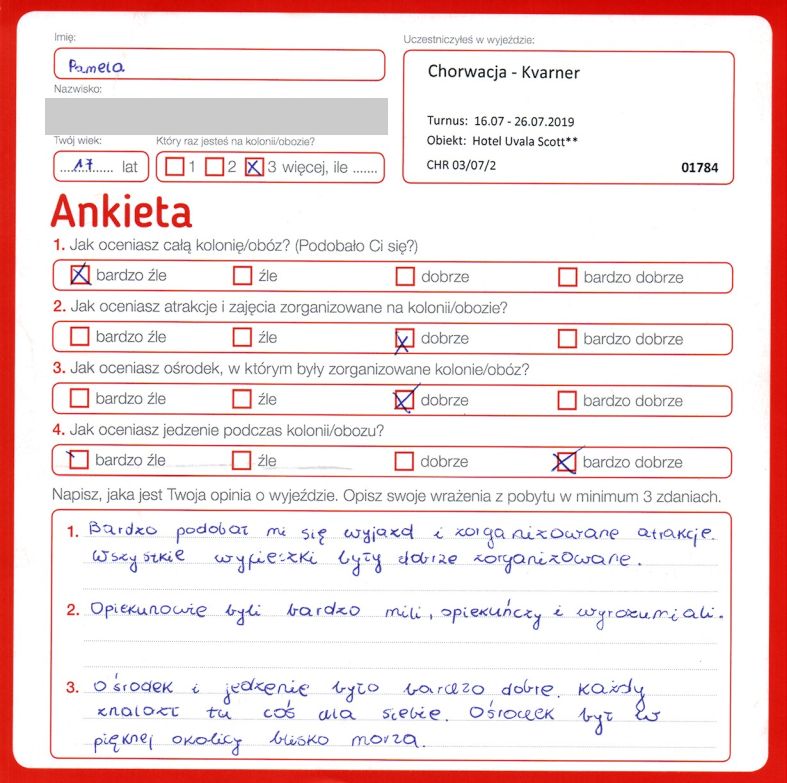 Imię:
Pamela
Nazwisko:
Twój wiek:
17 lat
Który raz jesteś na kolonii/obozie?
1 2 3 więcej, ile .......
Uczestniczyłeś w wyjeździe:
Chorwacja - Kvarner
Turnus: 16.07 - 26.07.2019
Obiekt: Hotel Uvala Scott**
CHR 03/07/2 01784
Ankieta
1. Jak oceniasz całą kolonię/obóz? (Podobało Ci się?)
bardzo źle źle dobrze bardzo dobrze
2. Jak oceniasz atrakcje i zajęcia zorganizowane na kolonii/obozie?
bardzo źle źle dobrze bardzo dobrze
3. Jak oceniasz ośrodek, w którym były zorganizowane kolonie/obóz?
bardzo źle źle dobrze bardzo dobrze
4. Jak oceniasz jedzenie podczas kolonii/obozu?
bardzo źle źle dobrze bardzo dobrze
Napisz, jaka jest Twoja opinia o wyjeździe. Opisz swoje wrażenia z pobytu w minimum 3 zdaniach.
1. Bardzo podobał mi się wyjazd i zorganizowane atrakcje.
Wszystkie wycieczki były dobrze zorganizowane.
2. Opiekunowie byli bardzo mili, opiekuńczy i wyrozumiali.
3. Ośrodek i jedzenie było bardzo dobre. Każdy
znalazł tu coś dla siebie. Ośrodek był w
pięknej okolicy blisko morza.